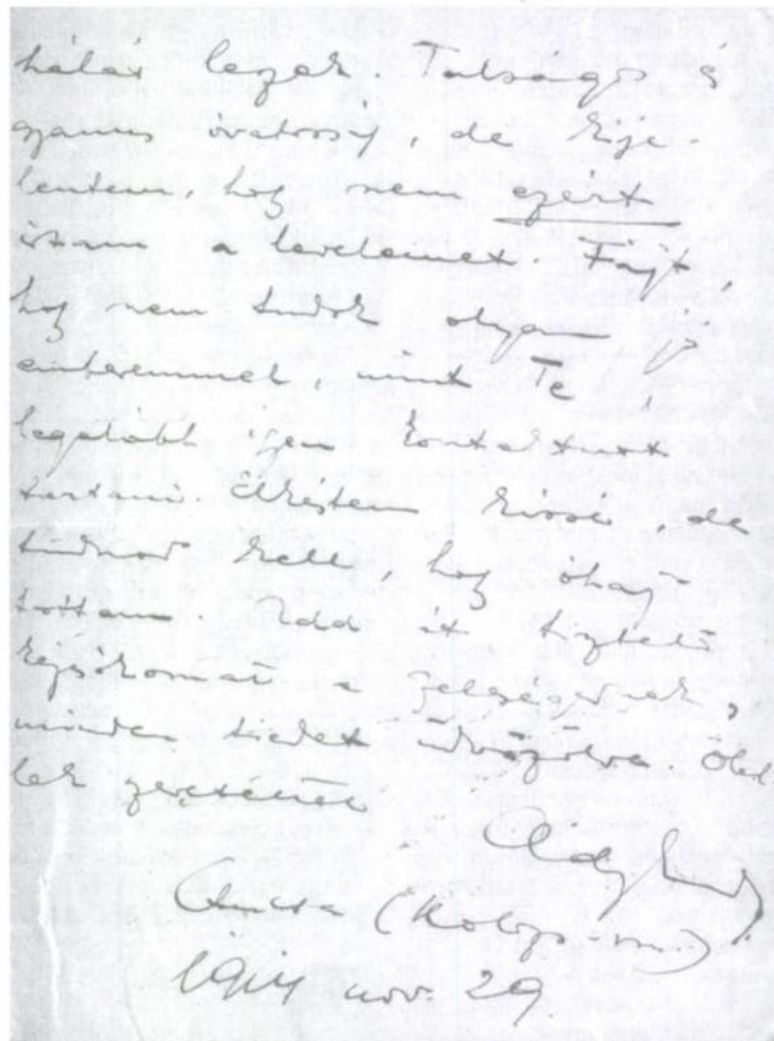 hálás leszek. Talságos s
gyanus óvatosság, de kije-
lentem, hogy nem ezért
írtam a levelemet. Fájt,
hogy nem tudok olyan jó
emberemmel, mint Te,
legalább igen kontaktust
tartani. Elkéstem kissé, de
tudnod kell, hogy óhaj-
tottam. Add át tisztelő
kézcsókomat a Feleségednek,
minden tiedet üdvözölve ölel-
lek szeretettel
Ady Endre
Csucsa (Kolozs m.)
1914 nov. 29